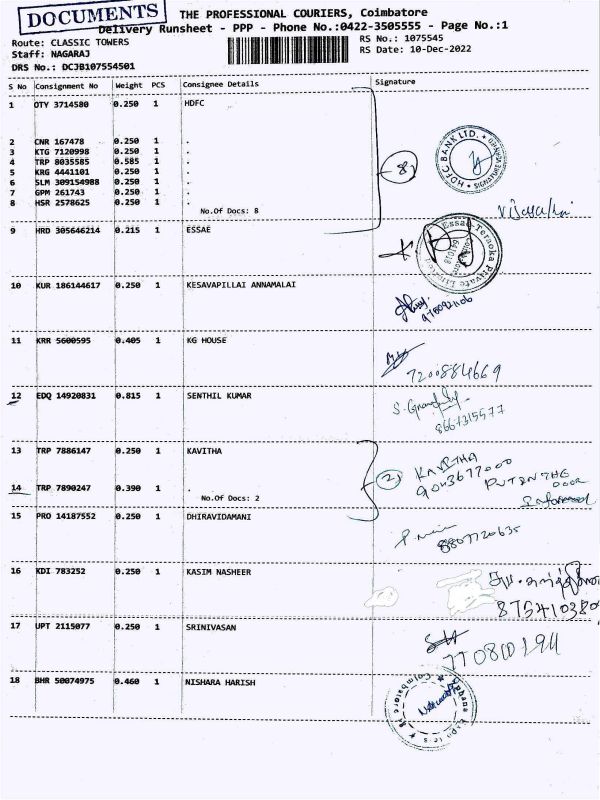 DOCUMENTS
THE PROFESSIONAL COURIERS, Coimbatore
Delivery Runsheet - PPP - Phone No.:0422-3505555 - Page No.:1
Route: CLASSIC TOWERS
RS No.: 1075545
Staff: NAGARAJ
RS Date: 10-Dec-2022
DRS No.: DCJB107554501
S No Consignment No Weight PCS Consignee Details Signature
1 OTY 3714580 0.250 1 HDFC
2 CNR 167478 0.250 1 .
3 KTG 7120998 0.250 1 .
4 TRP 8035585 0.585 1 .
5 KRG 4441101 0.250 1 .
6 SLM 309154988 0.250 1 .
7 GPM 261743 0.250 1 .
8 HSR 2578625 0.250 1 .
No.Of Docs: 8
8
HDFC BANK LTD.
9 HRD 305646214 0.215 1 ESSAE
Essae-Teraoka Private Limited
641018
10 KUR 186144617 0.250 1 KESAVAPILLAI ANNAMALAI
11 KRR 5600595 0.405 1 KG HOUSE
7200884669
12 EDQ 14920831 0.815 1 SENTHIL KUMAR
8667315577
13 TRP 7886147 0.250 1 KAVITHA
KAVITHA
9043677000
14 TRP 7890247 0.390 1 .
No.Of Docs: 2
2
PUT IN THE
DOOR
Informed
15 PRO 14187552 0.250 1 DHIRAVIDAMANI
8807720635
16 KDI 783252 0.250 1 KASIM NASHEER
17 UPT 2115077 0.250 1 SRINIVASAN
18 BHR 50074975 0.460 1 NISHARA HARISH